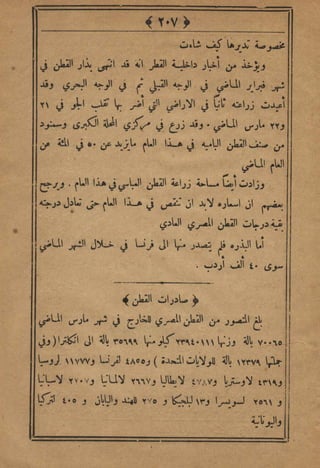 ﴿ ٢٠٧ ﴾
مخصوصة تديرها كيف شاءت
ويؤخذ من أخبار داخلية القطر انه قد انتهى بذار القطن في
شهر فبراير الماضي في الوجه القبلي ثم في الوجه البحري وقد
أعيدت زراعته ثانياً في الاراضي التي أضر بها تقلب الجو في ٢١
و٢٢ مارس الماضي . وقد زرع في مركزي المحلة الكبرى وسمنود
من صنف القطن الباميه في هذا العام ما يزيد عن ٥٠ في المئة عن
العام الماضي
وزادت أيضاً مساحة زراعة القطن العباسي في هذا العام . ويرجح
بعضهم ان اسعاره لابد ان تنقص في هذا العام حتى تعادل درجته
بقية درجات القطن المصري العادي
أما البذره فلم يتصدر منها الى فرنسا في خلال الشهر الماضي
سوى ٤٠ ألف أردب .
﴿ صادرات القطن ﴾
بلغ المتصور من القطن المصري للخارج في شهر مارس الماضي
٧٠٠٦٥ بالة وزنها ٢٣٩٤٠١١١ كيلو منها ٣٥٦٩٩ بالة الى انكلترا (وفي
جملتها ١٢٣٧٩ بالة للولايات المتحدة ) و٤٨٢٥ لفرنسا و١١٧٧٧ لروسيا
و٤٣١٩ لاوستريا و٤٧٨٧ لايطاليا و٢٦٦٧ لالمانيا و٢٧٠٧ لاسبانيا
و ٢٥٦١ لسويسرا و١٣ لبلجيكا و ٢٧٥ للهند واليابان و ٤٠٥ لتركيا
واليونانية